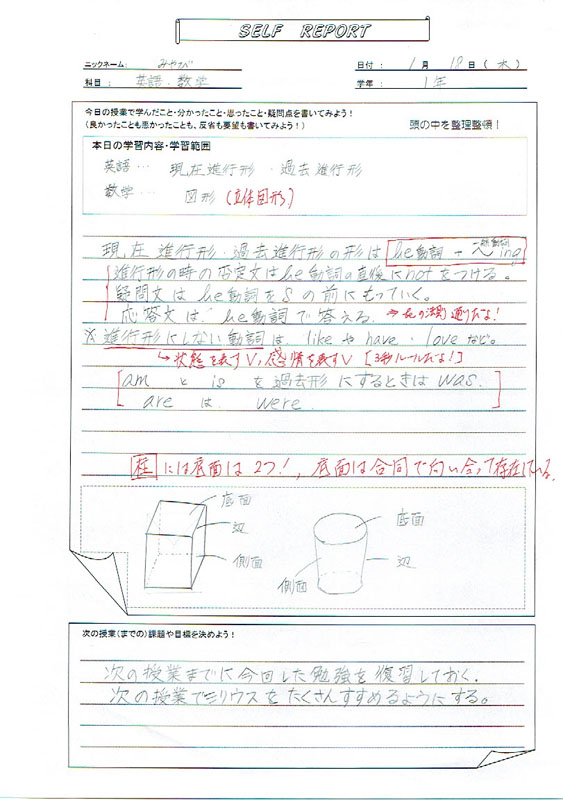 SELF REPORT
ニックネーム: みやび
日付: 1月 18日 (水)
科目: 英語・数学
学年: 1年
今日の授業で学んだこと・分かったこと・思ったこと・疑問点を書いてみよう!
(良かったことも悪かったことも、反省も要望も書いてみよう!)
頭の中を整理整頓!
本日の学習内容・学習範囲
英語… 現在進行形・過去進行形
数学… 図形 (立体図形)
現在進行形・過去進行形の形は be動詞 + 一般動詞 ~ing
進行形の時の否定文はbe動詞の直後にnotをつける。
疑問文はbe動詞をSの前にもっていく。
応答文は、be動詞で答える。 ⇒ beの法則通りだよ!
※進行形にしない動詞は、likeやhave・loveなど。
↳状態を表すV, 感情を表すV [ルールだよ!]
am と is を過去形にするときは was.
are は were.
柱には底面は2つ!, 底面は合同で向い合って存在している。
底面
辺
側面
底面
辺
側面
次の授業(までの)課題や目標を決めよう!
次の授業までに今回した勉強を復習しておく。
次の授業でシリウスをたくさんすすめるようにする。